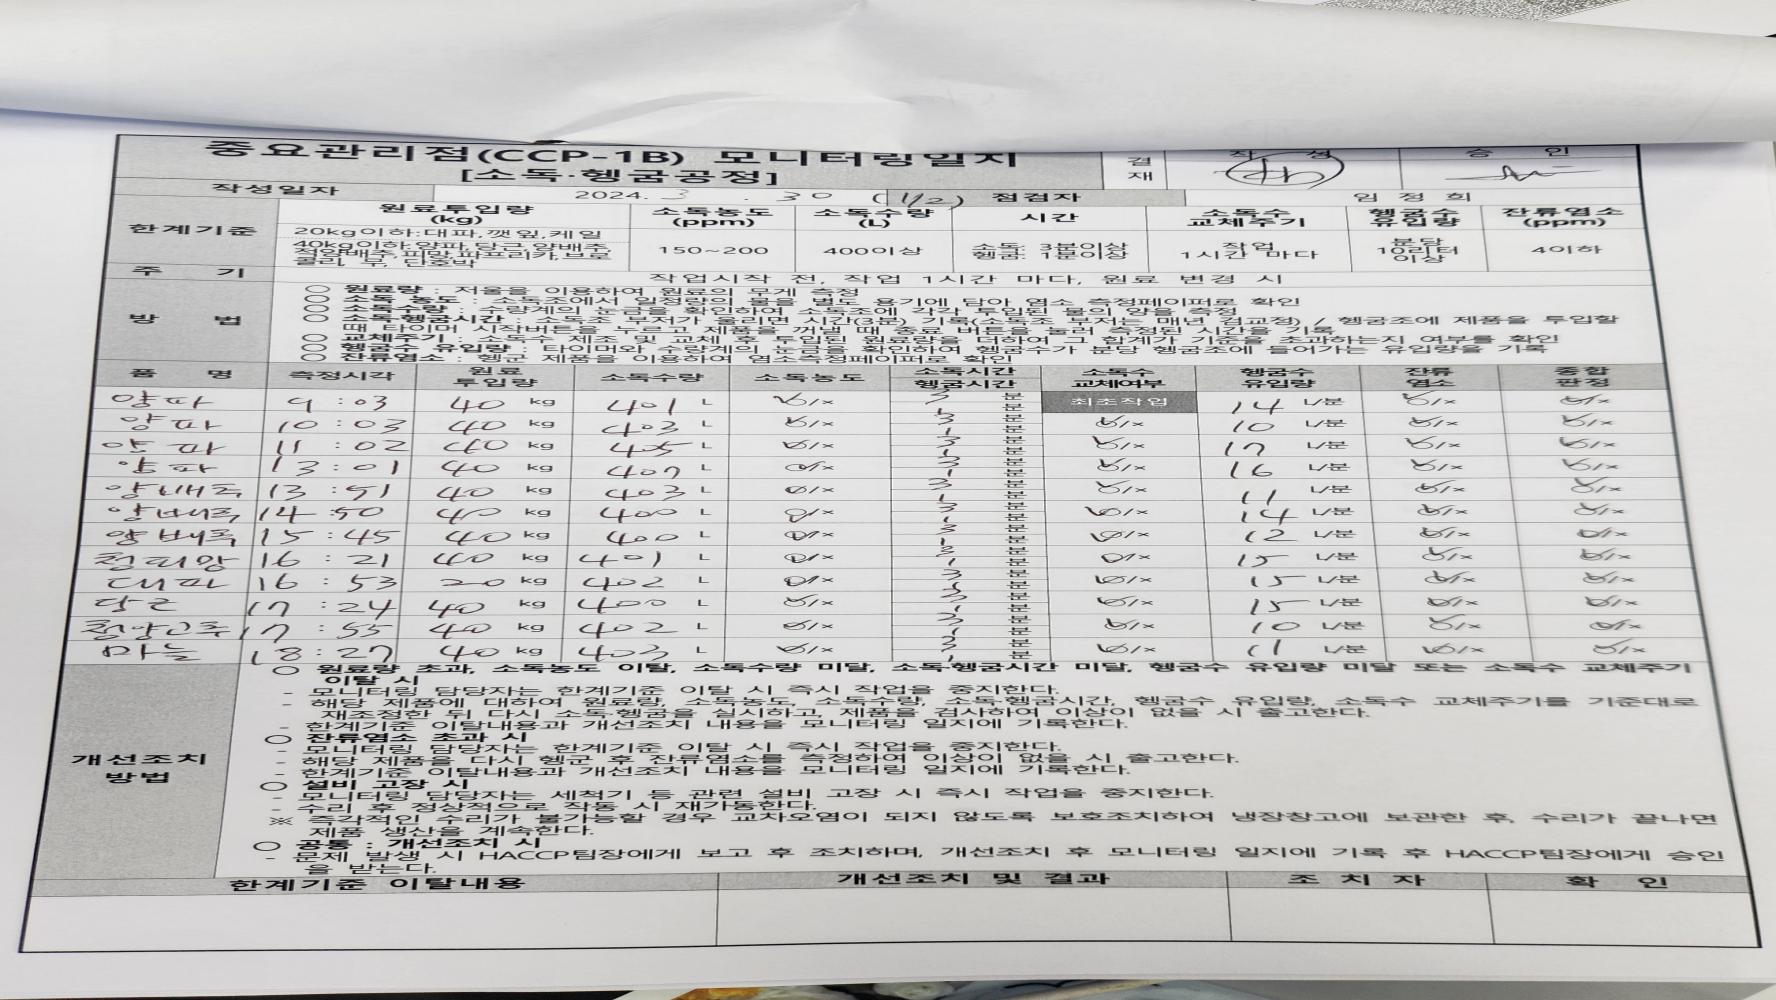 중요관리점(CCP-1B) 모니터링일지
[소독·헹굼공정]
결재 작성 승인
작성일자 2024. 3. 30 (1/2) 점검자 임정희
한계기준 원료투입량(kg) 소독농도(ppm) 소독수량(L) 시간 소독수 교체주기 헹굼수 유입량 잔류염소(ppm)
20kg이하:대파,깻잎,케일
40kg이하:양파,당근,양배추, 적양배추,피망,파프리카,브로콜리, 무, 단호박 150~200 400이상 소독: 3분이상 헹굼: 1분이상 작업 1시간 마다 분당 10리터 이상 4이하
주 기 작업시작 전, 작업 1시간 마다, 원료 변경 시
방 법
○ 원료량 : 저울을 이용하여 원료의 무게 측정
○ 소독 농도 : 소독조에서 일정량의 물을 별도 용기에 담아 염소 측정페이퍼로 확인
○ 소독수량 : 수량계의 눈금을 확인하여 소독조에 각각 투입된 물의 양을 측정
○ 소독헹굼시간 : 소독조 부저가 울리면 시간(3분) 기록(소독조 부저는 매년 검교정) / 헹굼조에 제품을 투입할
때 타이머 시작버튼을 누르고 제품을 꺼낼 때 종료 버튼을 눌러 측정된 시간을 기록
○ 교체주기 : 소독수 제조 및 교체 후 투입된 원료량을 더하여 그 합계가 기준을 초과하는지 여부를 확인
○ 헹굼수 유입량 : 타이머와 수량계의 눈금을 확인하여 헹굼수가 분당 헹굼조에 들어가는 유입량을 기록
○ 잔류염소 : 헹군 제품을 이용하여 염소측정페이퍼로 확인
품 명 측정시각 원료 투입량 소독수량 소독농도 소독시간 헹굼시간 소독수 교체여부 헹굼수 유입량 잔류 염소 종합 판정
양파 9 : 03 40 kg 401 L ○/× 3 분 1 분 최초작업 14 L/분 ○/× ○/×
양파 10 : 03 40 kg 403 L ○/× 3 분 1 분 ○/× 10 L/분 ○/× ○/×
양파 11 : 02 40 kg 405 L ○/× 3 분 1 분 ○/× 17 L/분 ○/× ○/×
양파 13 : 01 40 kg 407 L ○/× 3 분 1 분 ○/× 16 L/분 ○/× ○/×
양배추 13 : 51 40 kg 403 L ○/× 3 분 1 분 ○/× 11 L/분 ○/× ○/×
양배추 14 : 50 40 kg 400 L ○/× 3 분 1 분 ○/× 14 L/분 ○/× ○/×
양배추 15 : 45 40 kg 400 L ○/× 3 분 1 분 ○/× 12 L/분 ○/× ○/×
청피망 16 : 21 40 kg 401 L ○/× 3 분 1 분 ○/× 15 L/분 ○/× ○/×
대파 16 : 53 20 kg 402 L ○/× 3 분 1 분 ○/× 15 L/분 ○/× ○/×
당근 17 : 24 40 kg 400 L ○/× 3 분 1 분 ○/× 15 L/분 ○/× ○/×
청양고추 17 : 55 40 kg 402 L ○/× 3 분 1 분 ○/× 10 L/분 ○/× ○/×
마늘 18 : 27 40 kg 403 L ○/× 3 분 1 분 ○/× 11 L/분 ○/× ○/×
개선조치 방법
○ 원료량 초과, 소독농도 이탈, 소독수량 미달, 소독헹굼시간 미달, 헹굼수 유입량 미달 또는 소독수 교체주기
이탈 시
- 모니터링 담당자는 한계기준 이탈 시 즉시 작업을 중지한다.
- 해당 제품에 대하여 원료량, 소독농도, 소독수량, 소독헹굼시간, 헹굼수 유입량, 소독수 교체주기를 기준대로
재조정한 뒤 다시 소독헹굼을 실시하고, 제품을 검사하여 이상이 없을 시 출고한다.
- 한계기준 이탈내용과 개선조치 내용을 모니터링 일지에 기록한다.
○ 잔류염소 초과 시
- 모니터링 담당자는 한계기준 이탈 시 즉시 작업을 중지한다.
- 해당 제품을 다시 헹군 후 잔류염소를 측정하여 이상이 없을 시 출고한다.
- 한계기준 이탈내용과 개선조치 내용을 모니터링 일지에 기록한다.
○ 설비 고장 시
- 모니터링 담당자는 세척기 등 관련 설비 고장 시 즉시 작업을 중지한다.
- 수리 후 정상적으로 작동 시 재가동한다.
※ 즉각적인 수리가 불가능할 경우 교차오염이 되지 않도록 보호조치하여 냉장창고에 보관한 후, 수리가 끝나면
제품 생산을 계속한다.
○ 공통 : 개선조치 시
- 문제 발생 시 HACCP팀장에게 보고 후 조치하며, 개선조치 후 모니터링 일지에 기록 후 HACCP팀장에게 승인
을 받는다.
한계기준 이탈내용 개선조치 및 결과 조 치 자 확 인